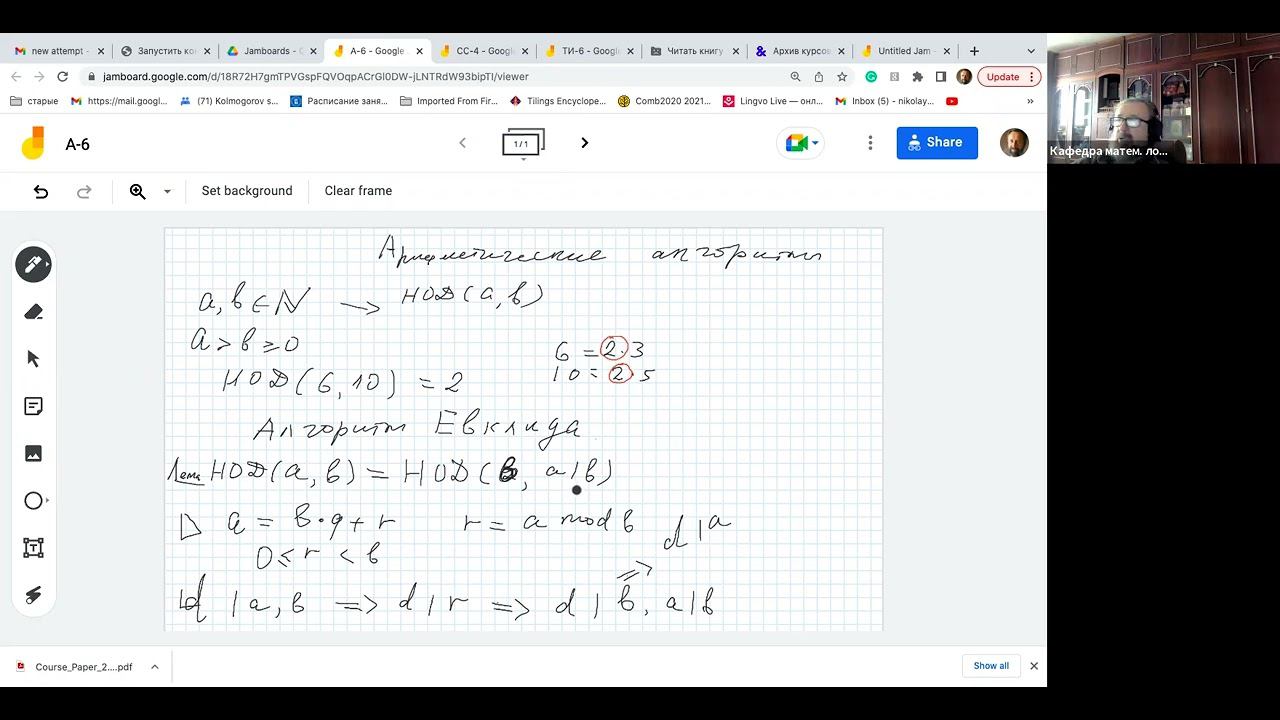 new attempt -
Запустить кон
Jamboards - G
A-6 - Google
CC-4 - Google
ТИ-6 - Google
Читать книгу
Архив курсов
Untitled Jam -
jamboard.google.com/d/18R72H7gmTPVGspFQVOqpACrGl0DW-jLNTRdW93bipTI/viewer
Update
старые
https://mail.googl...
(71) Kolmogorov s...
Расписание заня...
Imported From Fir...
Tilings Encyclope...
Comb2020 2021...
Lingvo Live — онл...
Inbox (5) - nikolay...
A-6
1/1
Share
Кафедра матем. ло...
Set background
Clear frame
Арифметические алгоритмы
a, b ∈ ℕ → НОД(a, b)
a > b ≥ 0
6 = 2·3
10 = 2·5
НОД(6, 10) = 2
Алгоритм Евклида
Лемма НОД(a, b) = НОД(b, a|b)
▷ a = b·q + r r = a mod b d | a
0 ≤ r < b
=>
d | a, b => d | r => d | b, a|b
Course_Paper_2....pdf
Show all